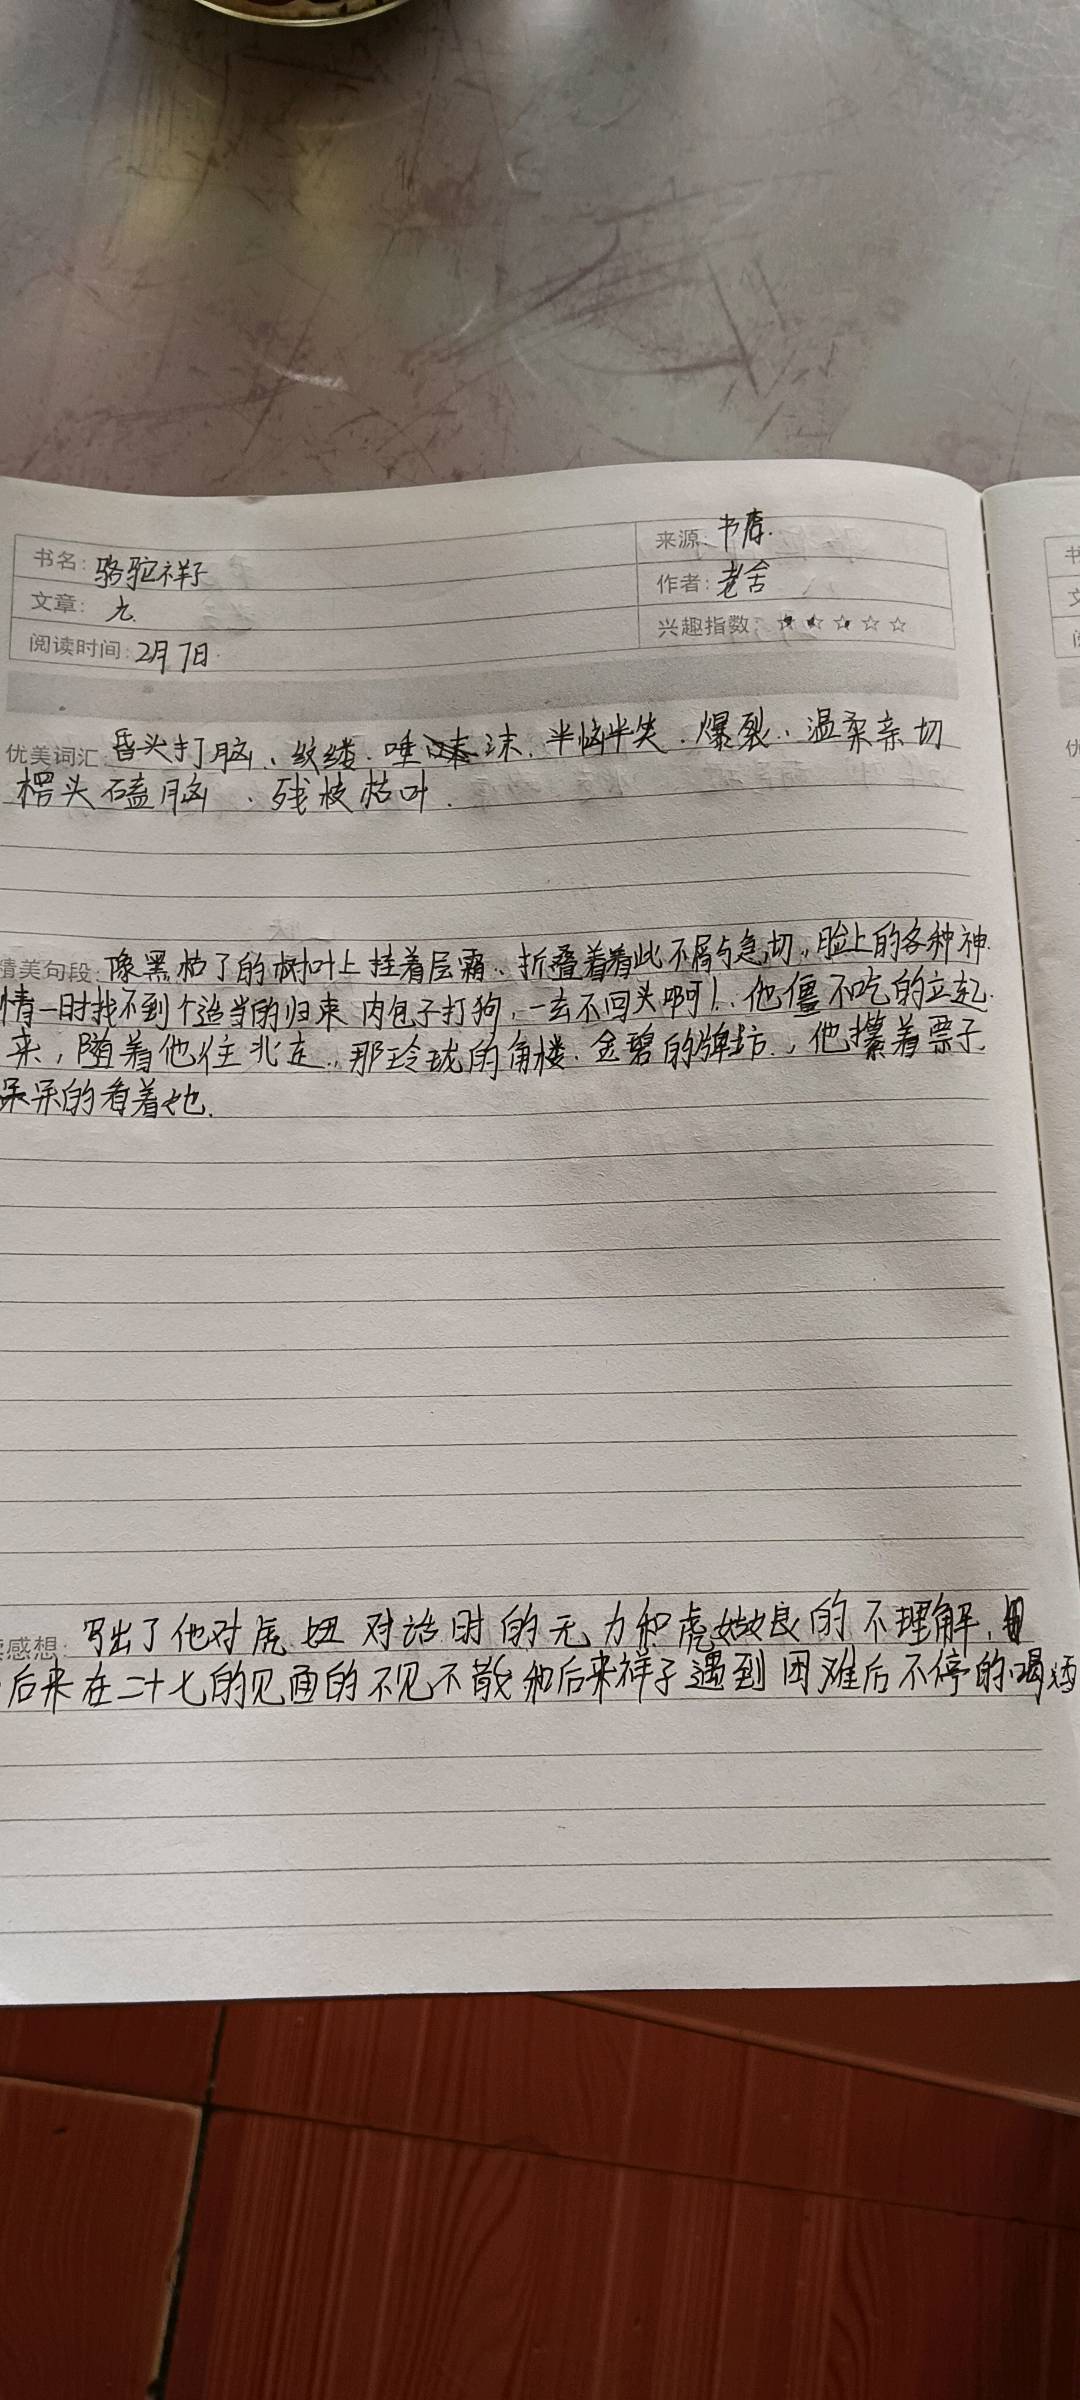 书名: 骆驼祥子 来源: 书店.
文章: 九. 作者: 老舍
阅读时间: 2月7日. 兴趣指数: ☆☆☆☆☆
优美词汇: 昏头打脑、纹缕.唾沫.半恼半笑.爆裂、温柔亲切
楞头磕脑、残枝枯叶.
精美句段: 像黑枯了的树叶上挂着层霜、折叠着看此不屑与急切、脸上的各种神
情一时找不到个适当的归束 肉包子打狗,一去不回头啊!、他僵不吃的立起
来,随着他往北走、那玲珑的角楼.金碧的牌坊、他攥着票子
呆呆的看着她.
感想: 写出了他对虎妞对话时的无力和虎妞娘的不理解,
后来在二十七的见面的不见不散和后来祥子遇到困难后不停的喝酒
书
文
优